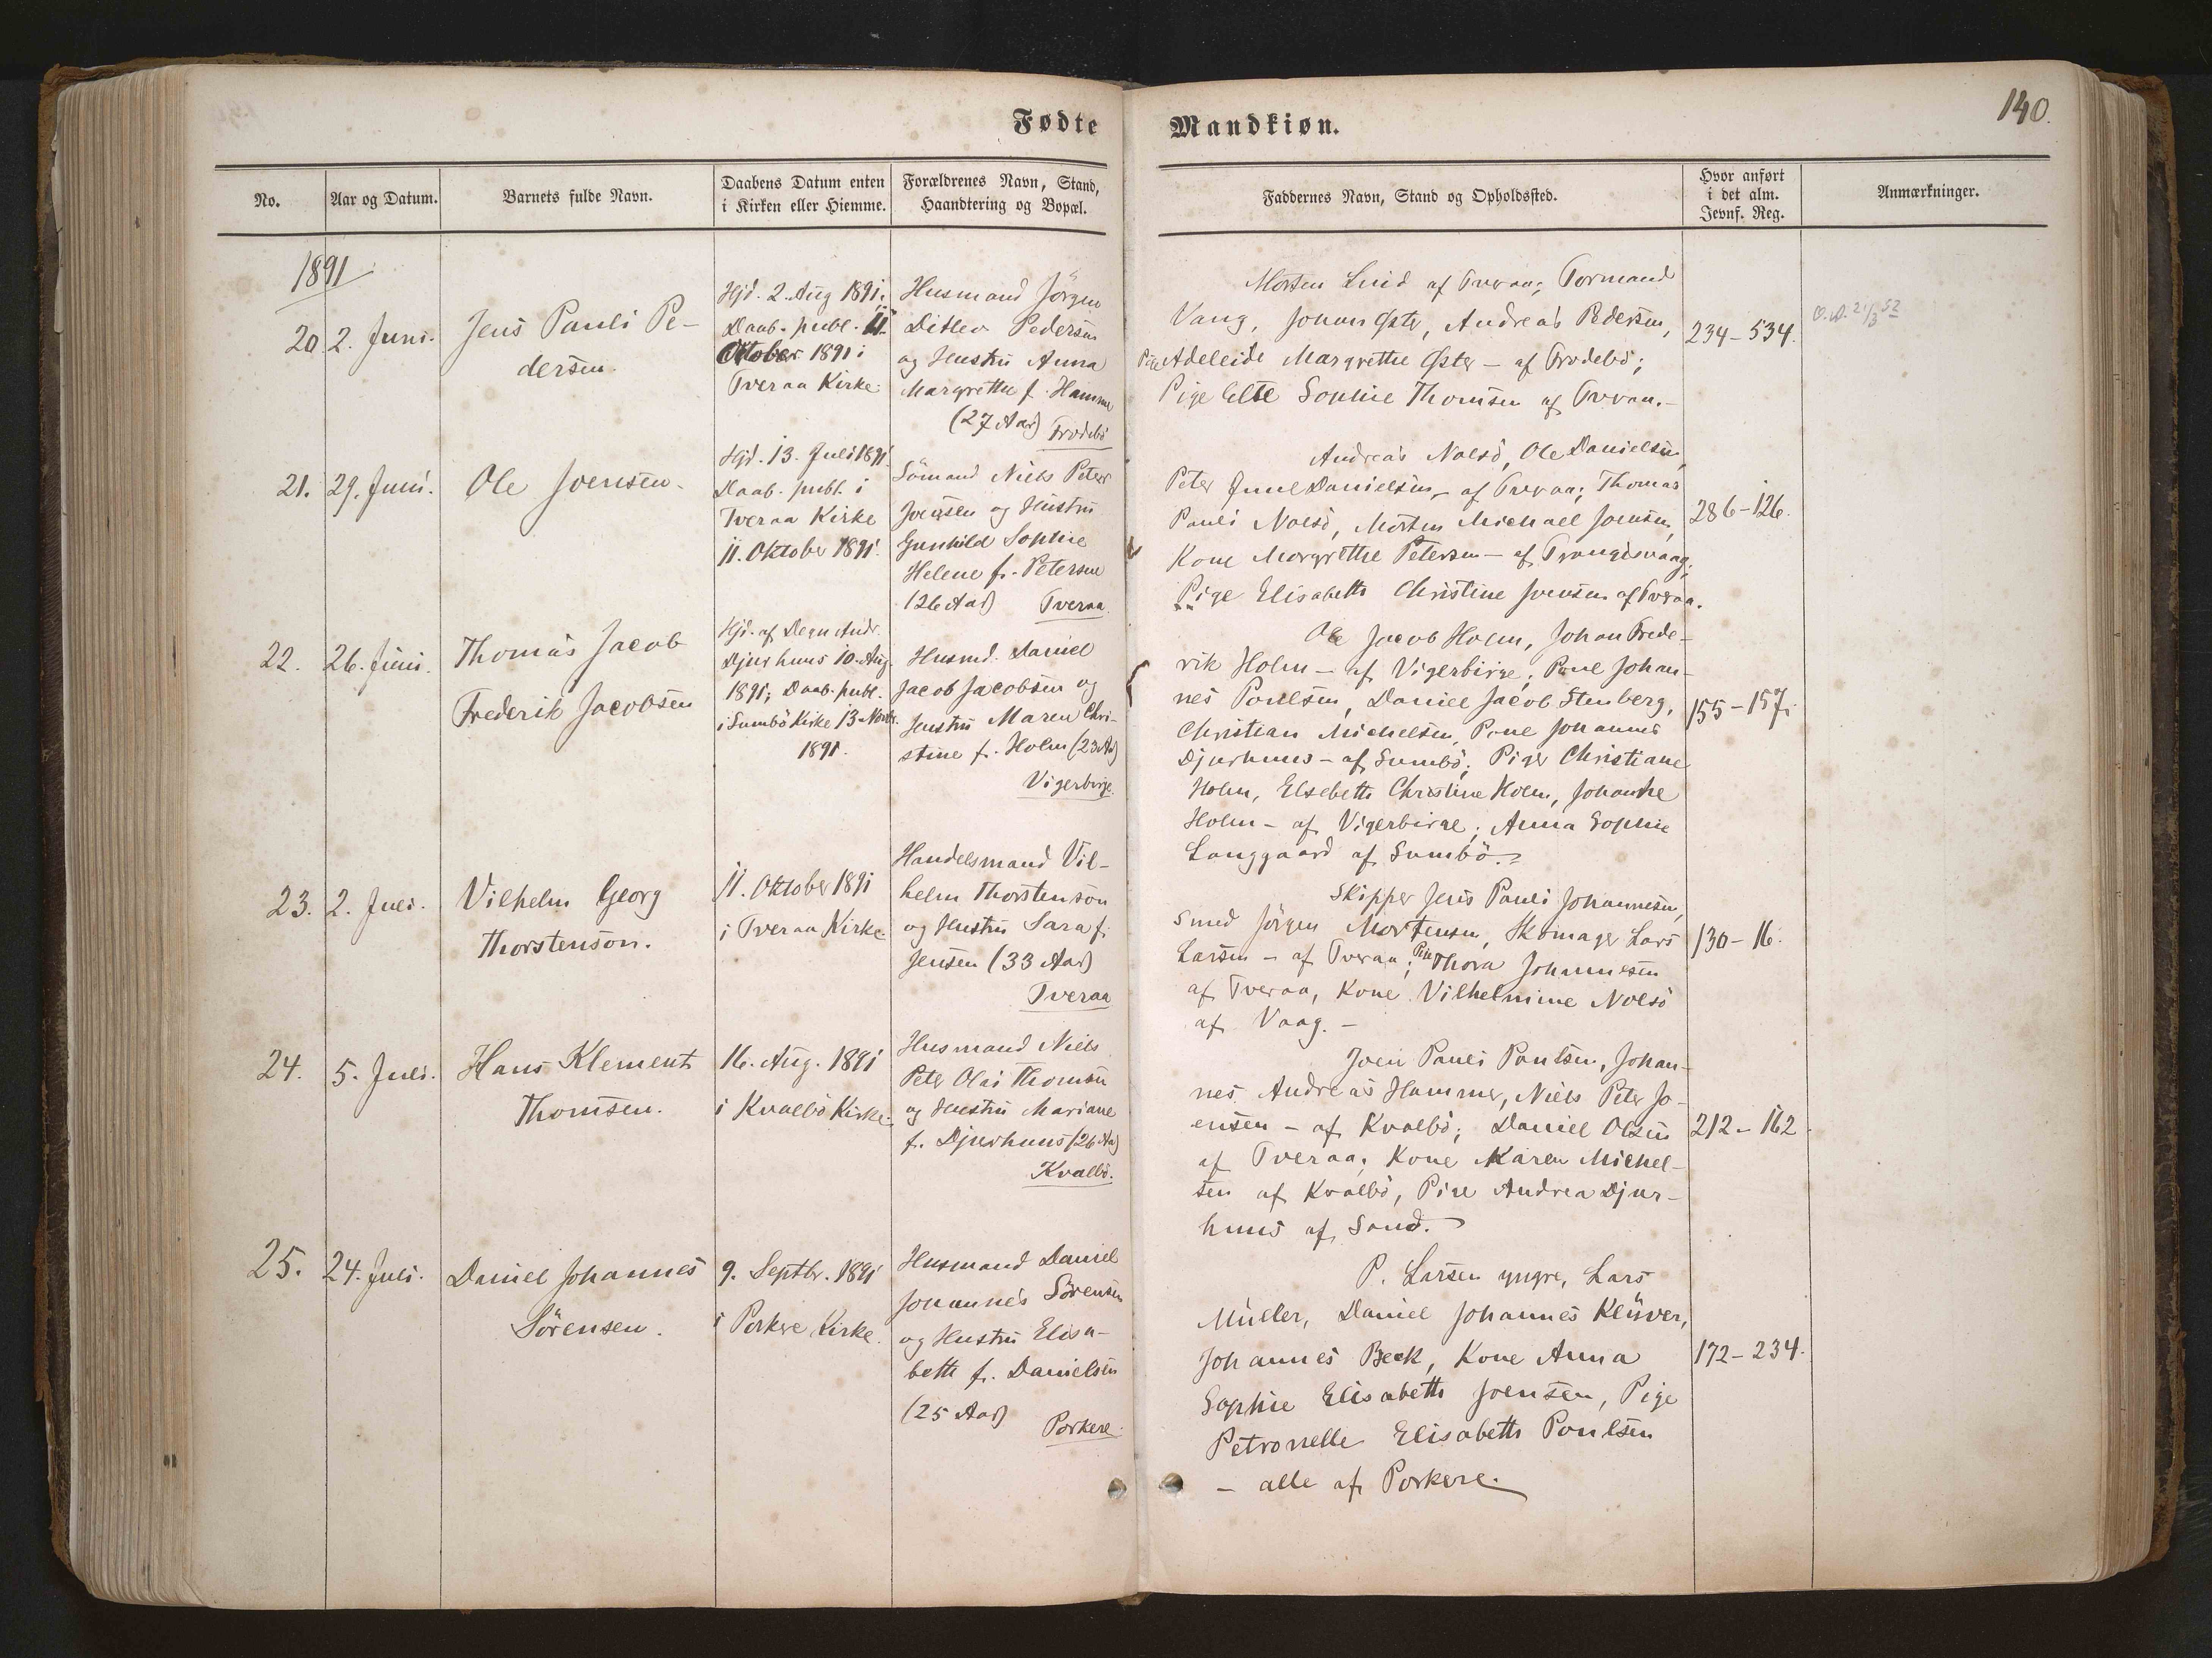 Fødte
Mandkiøn.
140.
No.
Aar og Datum.
Barnets fulde Navn.
Daabens Datum enten
i Kirken eller Hiemme.
Forældrenes Navn, Stand,
Haandtering og Bopæl.
Faddernes Navn, Stand og Opholdssted.
Hvor anført
i det alm.
Jevnf. Reg.
Anmærkninger.
1891
20.
2. Juni.
Jens Pauli Pe-
dersen.
Hjd. 2. Aug 1891;
Daab. publ. 11.
Oktober 1891 i
Tveraa Kirke.
Husmand Jörgen
Ditlev Pedersen
og Hustru Anna
Margrethe f. Hammer
(27 Aar) Frodebö
Morten Lind af Tveraa; Formand
Vang, Johan Øster, Andreas Pedersen,
Pige Adeleide Margrethe Øster - af Frodebö;
Pige Else Sophie Thomsen af Tveraa.-
234-534.
21.
29. Juni.
Ole Joensen.
Hjd. 13. Juli 1891.
Daab. publ. i
Tveraa Kirke
11. Oktober 1891.
Sömand Niels Peter
Joensen og Hustru
Gunhild Sophie
Helene f. Petersen
(26 Aar) Tveraa.
Andreas Nolsö, Ole Danielsen,
Peter Juul Danielsen, - af Tveraa; Thomas
Pauli Nolsö, Morten Michael Joensen,
Kone Margrethe Petersen - af Trangisvaag;
Pige Elisabeth Christine Joensen af Tveraa.
286-126.
22.
26. Juni.
Thomas Jacob
Frederik Jacobsen
Hjd. af Degn Andr.
Djurhuus 10. Aug.
1891; Daab. publ.
i Sumbö Kirke 13 Novbr.
1891.
Husmd. Daniel
Jacob Jacobsen og
Hustru Maren Chri-
stine f. Holm (23 Aar)
Vigerbirge.
Ole Jacob Holm, Johan Frede-
rik Holm - af Vigerbirge; Poul Johan-
nes Poulsen, Daniel Jacob Stenberg,
Christian Michelsen, Poul Johannes
Djurhuus - af Sumbö; Piger Christiane
Holm, Elsebeth Christine Holm, Johanne
Holm - af Vigerbirge; Anna Sophie
Langgaard af Sumbö.-
155-157.
23.
2. Juli.
Vilhelm Georg
Thorstenson.
11. Oktober 1891
i Tveraa Kirke.
Handelsmand Vil-
helm Thorstenson
og Hustru Sara f.
Jensen (33 Aar)
Tveraa
Skipper Jens Pauli Johannesen,
Smed Jörgen Mortensen, Skomager Lars
Larsen - af Tveraa; Pige Thora Johannesen
af Tveraa, Kone Vilhelmine Nolsö
af Vaag.-
130-16.
24.
5. Juli.
Hans Klement
Thomsen.
16. Aug. 1891
i Kvalbö Kirke.
Husmand Niels
Peter Olai Thomsen
og Hustru Mariane
f. Djurhuus (26 Aar)
Kvalbö.
Joen Pauli Poulsen, Johan-
nes Andreas Hammer, Niels Peter Jo-
ensen - af Kvalbö; Daniel Olsen
af Tveraa; Kone Maren Michel-
sen af Kvalbö, Pige Andrea Djur-
huus af Sand.-
212-162.
25.
24. Juli.
Daniel Johannes
Sörensen.
9. Septbr. 1891
i Porkere Kirke.
Husmand Daniel
Johannes Sörensen
og Hustru Elisa-
beth f. Danielsen
(25 Aar)
Porkere.
P. Larsen yngre, Lars
Müller, Daniel Johannes Klüver,
Johannes Beck, Kone Anna
Sophie Elisabeth Joensen, Pige
Petronelle Elisabeth Poulsen
- alle af Porkere.
172-234.